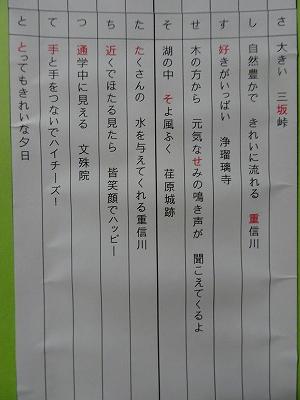 さ 大きい 三坂峠
し 自然豊かで きれいに流れる 重信川
す 好きがいっぱい 浄瑠璃寺
せ 木の方から 元気なせみの鳴き声が 聞こえてくるよ
そ 湖の中 そよ風ふく 荏原城跡
た たくさんの 水を与えてくれる重信川
ち 近くでほたる見たら 皆笑顔でハッピー
つ 通学中に見える 文殊院
て 手と手をつないでハイチーズ!
と とってもきれいな夕日